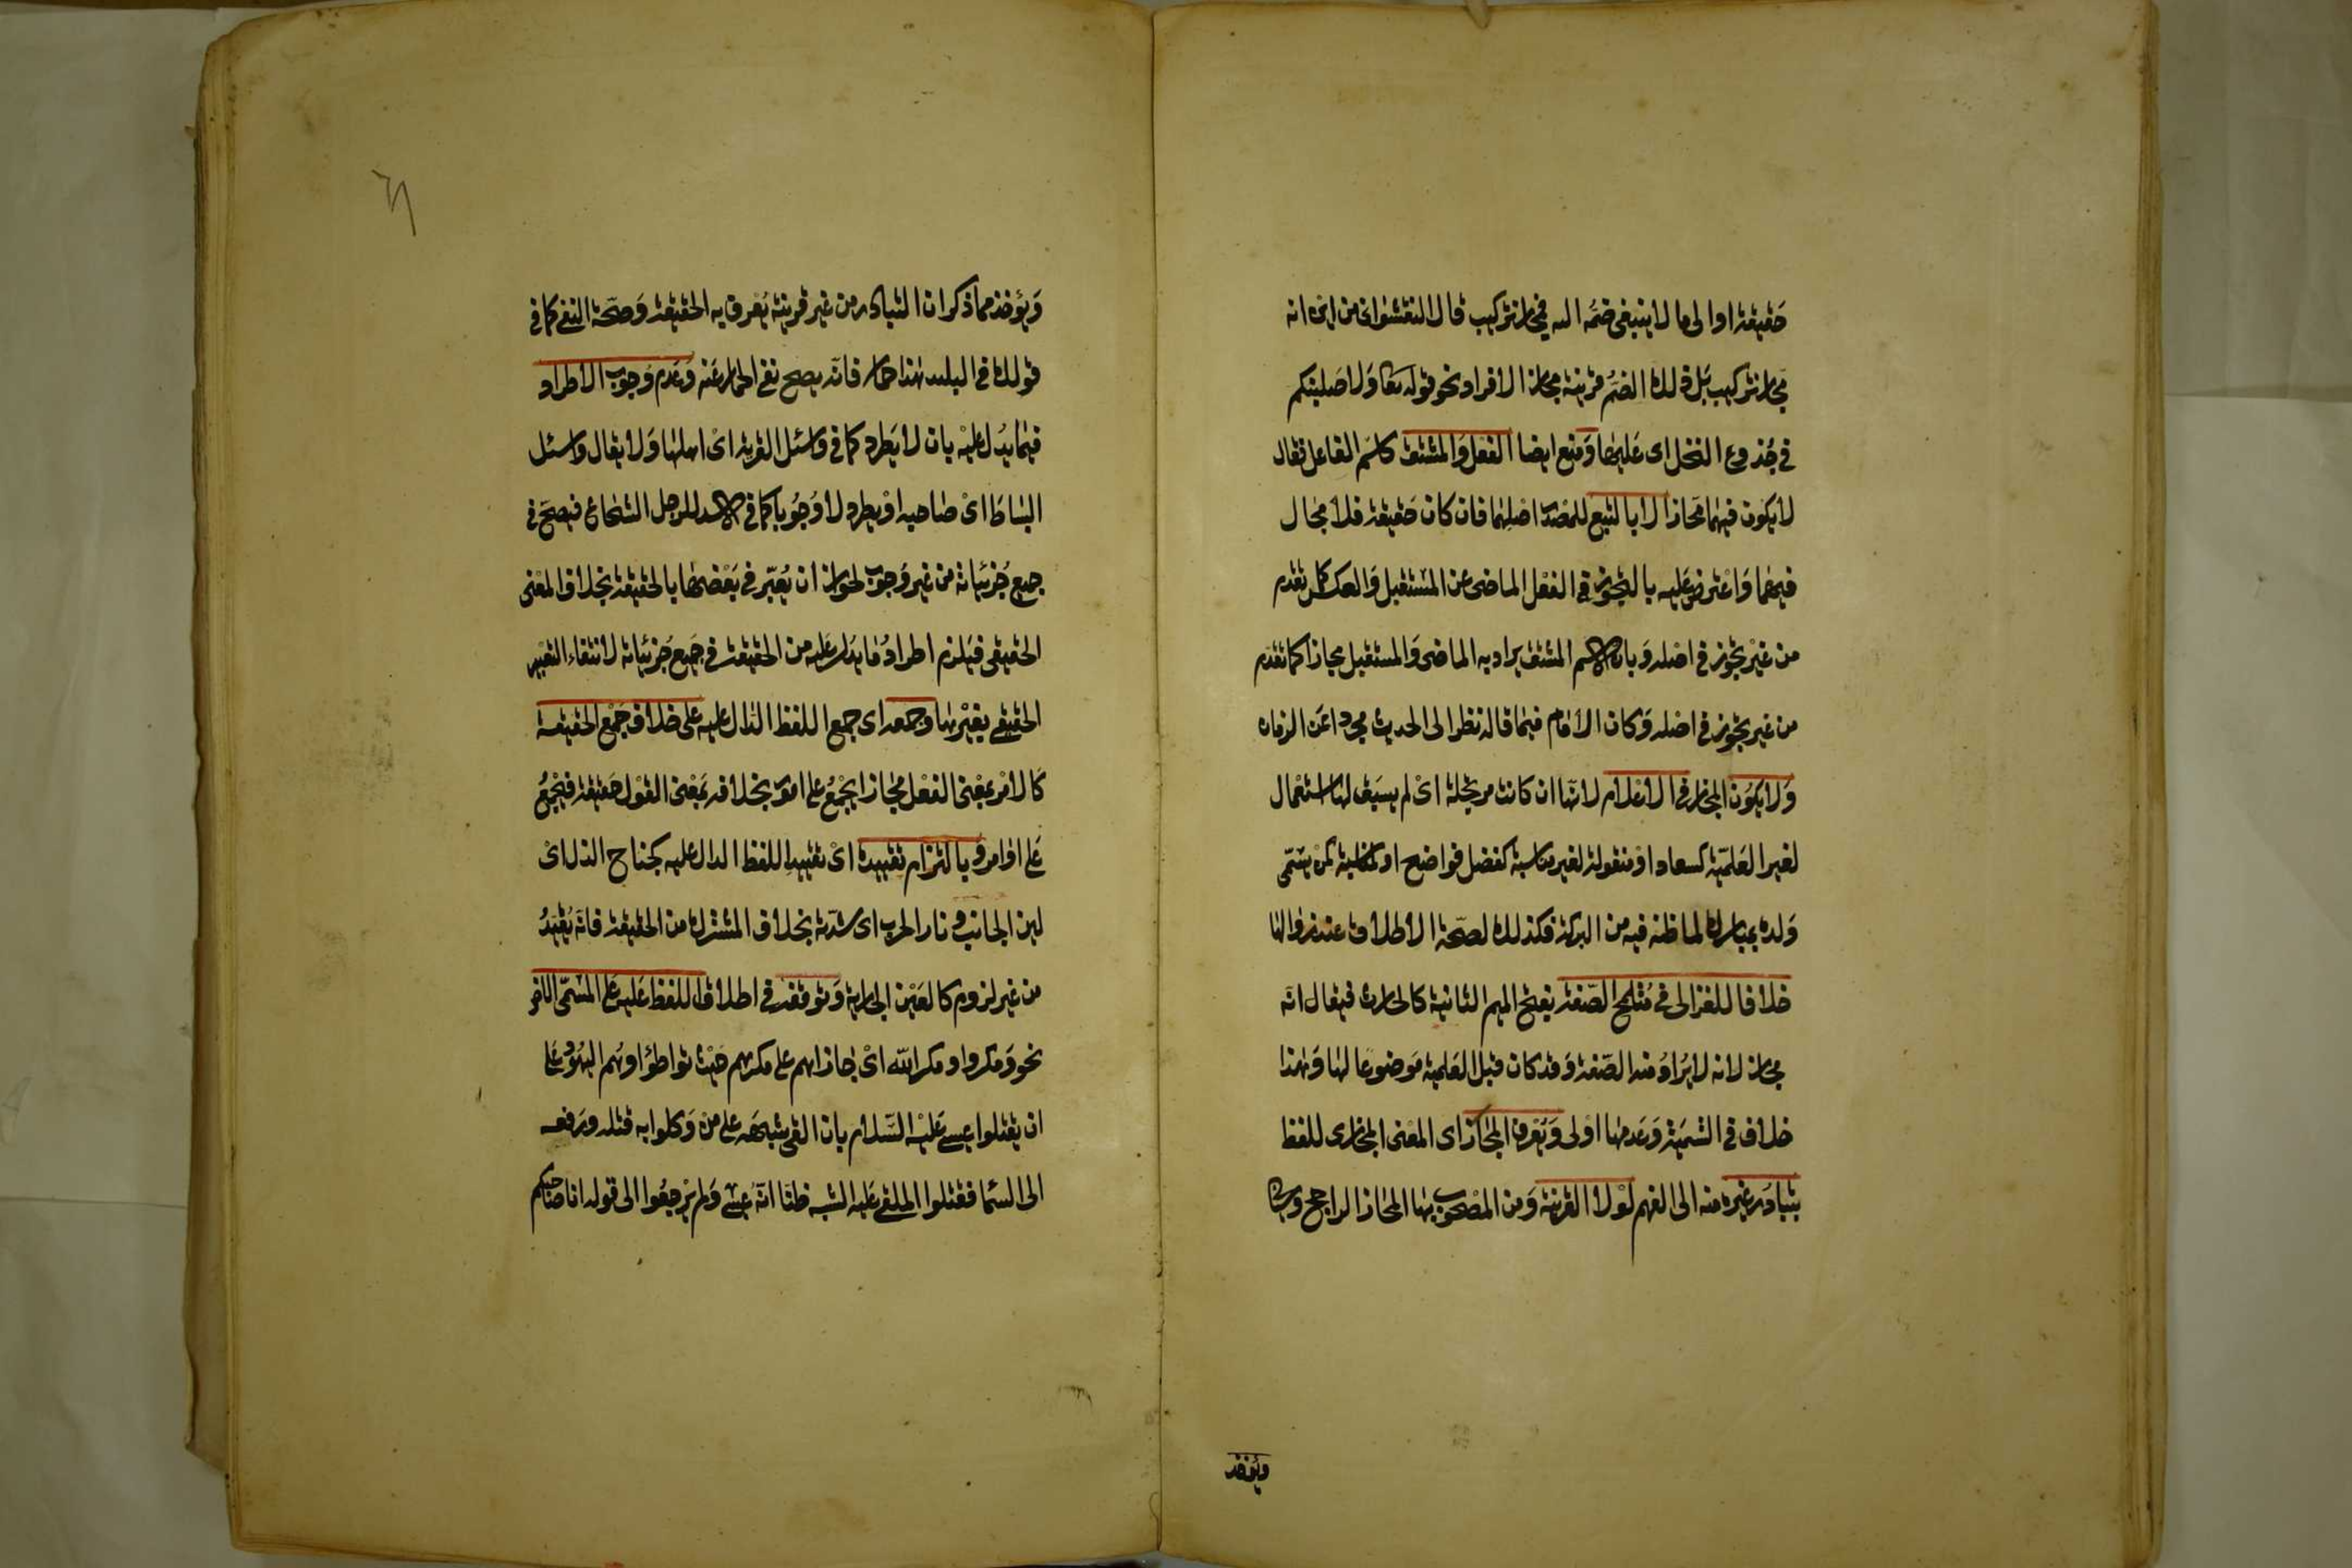 حقيقة او الى ما لا ينبغى ضمه اليه فمجاز تركيب قال النقشوانى من اين انه
مجاز تركيب بل ذلك الضم قرينة مجاز الافراد نحو قوله تعا ولاصلبنكم
فى جذوع النخل اى عليها ومنع ايضا الفعل والمشتق كاسم الفاعل فقال
لا يكون فيهما مجازا الا بالتبع للمصدر اصلهما فان كان حقيقة فلا مجاز
فيهما واعترض عليه بالتجوز فى الفعل الماضى عن المستقبل والعكس كما تقدم
من غير تجوز فى اصله وبان الاسم المشتق يراد به الماضى والمستقبل مجازا كما تقدم
من غير تجوز فى اصله وكان الامام فيما قاله نظر الى الحديث مجردا عن الزمان
ولا يكون المجاز فى الاعلام لانها ان كانت مرتجلة اى لم يسبق لها استعمال
لغير العلمية كسعاد او منقولة لغير مناسبة كفضل فواضح او لمناسبة كمن سمى
ولده بمبارك لما ظنه فيه من البركة فكذلك لصحة الاطلاق عند زوالها
خلافا للغزالى فى متلمح الصفة بفتح الميم الثانية كالحارث فيقال انه
مجاز لانه لا يراد منه الصفة وقد كان قبل العلمية موضوعا لها وهذا
خلاف فى التسمية وعدمها اولى ويعرف المجاز اى المعنى المجازى للفظ
بتبادر غيره منه الى الفهم لولا القرينة ومن المصحوب بها المجاز الراجح
ويؤخذ
ويؤخذ مما ذكر ان التبادر من غير قرينة يعرف به الحقيقة وصحة النفى كما فى
قولك فى البليد هذا حمار فانه يصح نفى الحمار عنه وعدم وجوب الاطراد
فيما يدل عليه بان لا يطرد كما فى واسئل القرية اى اهلها ولا يقال واسئل
البساط اى صاحبه او يطرد لا وجوبا كما فى الاسد للرجل الشجاع فيصح فى
جميع جزئياته من غير وجوب لجواز ان يعبر فى بعضها بالحقيقة بخلاف المعنى
الحقيقى فيلزم اطراد ما يدل عليه من الحقيقة فى جميع جزئياته لانتفاء التعبير
الحقيقى بغيرها وجمعه اى جمع اللفظ الدال عليه على خلاف جمع الحقيقة
كالامر بمعنى الفعل مجازا يجمع على امور بخلافه بمعنى القول حقيقة فيجمع
على اوامر وبالتزام تقييده اى تقييد اللفظ الدال عليه كجناح الذل اى
لين الجانب ونار الحرب اى شدته بخلاف المشترك من الحقيقة فانه يقيد
من غير لزوم كالعين الجارية وتوقفه فى اطلاق اللفظ عليه على المسمى الاخر
نحو ومكروا ومكر الله اى جازاهم على مكرهم حيث تواطؤا وهم اليهود على
ان يقتلوا عيسى عليه السلام بان القى شبهه على من وكلوا به قتله ورفعه
الى السما فقتلوا الملقى عليه الشبه ظنا انه عيسى ولم يرجعوا الى قوله انا صاحبكم